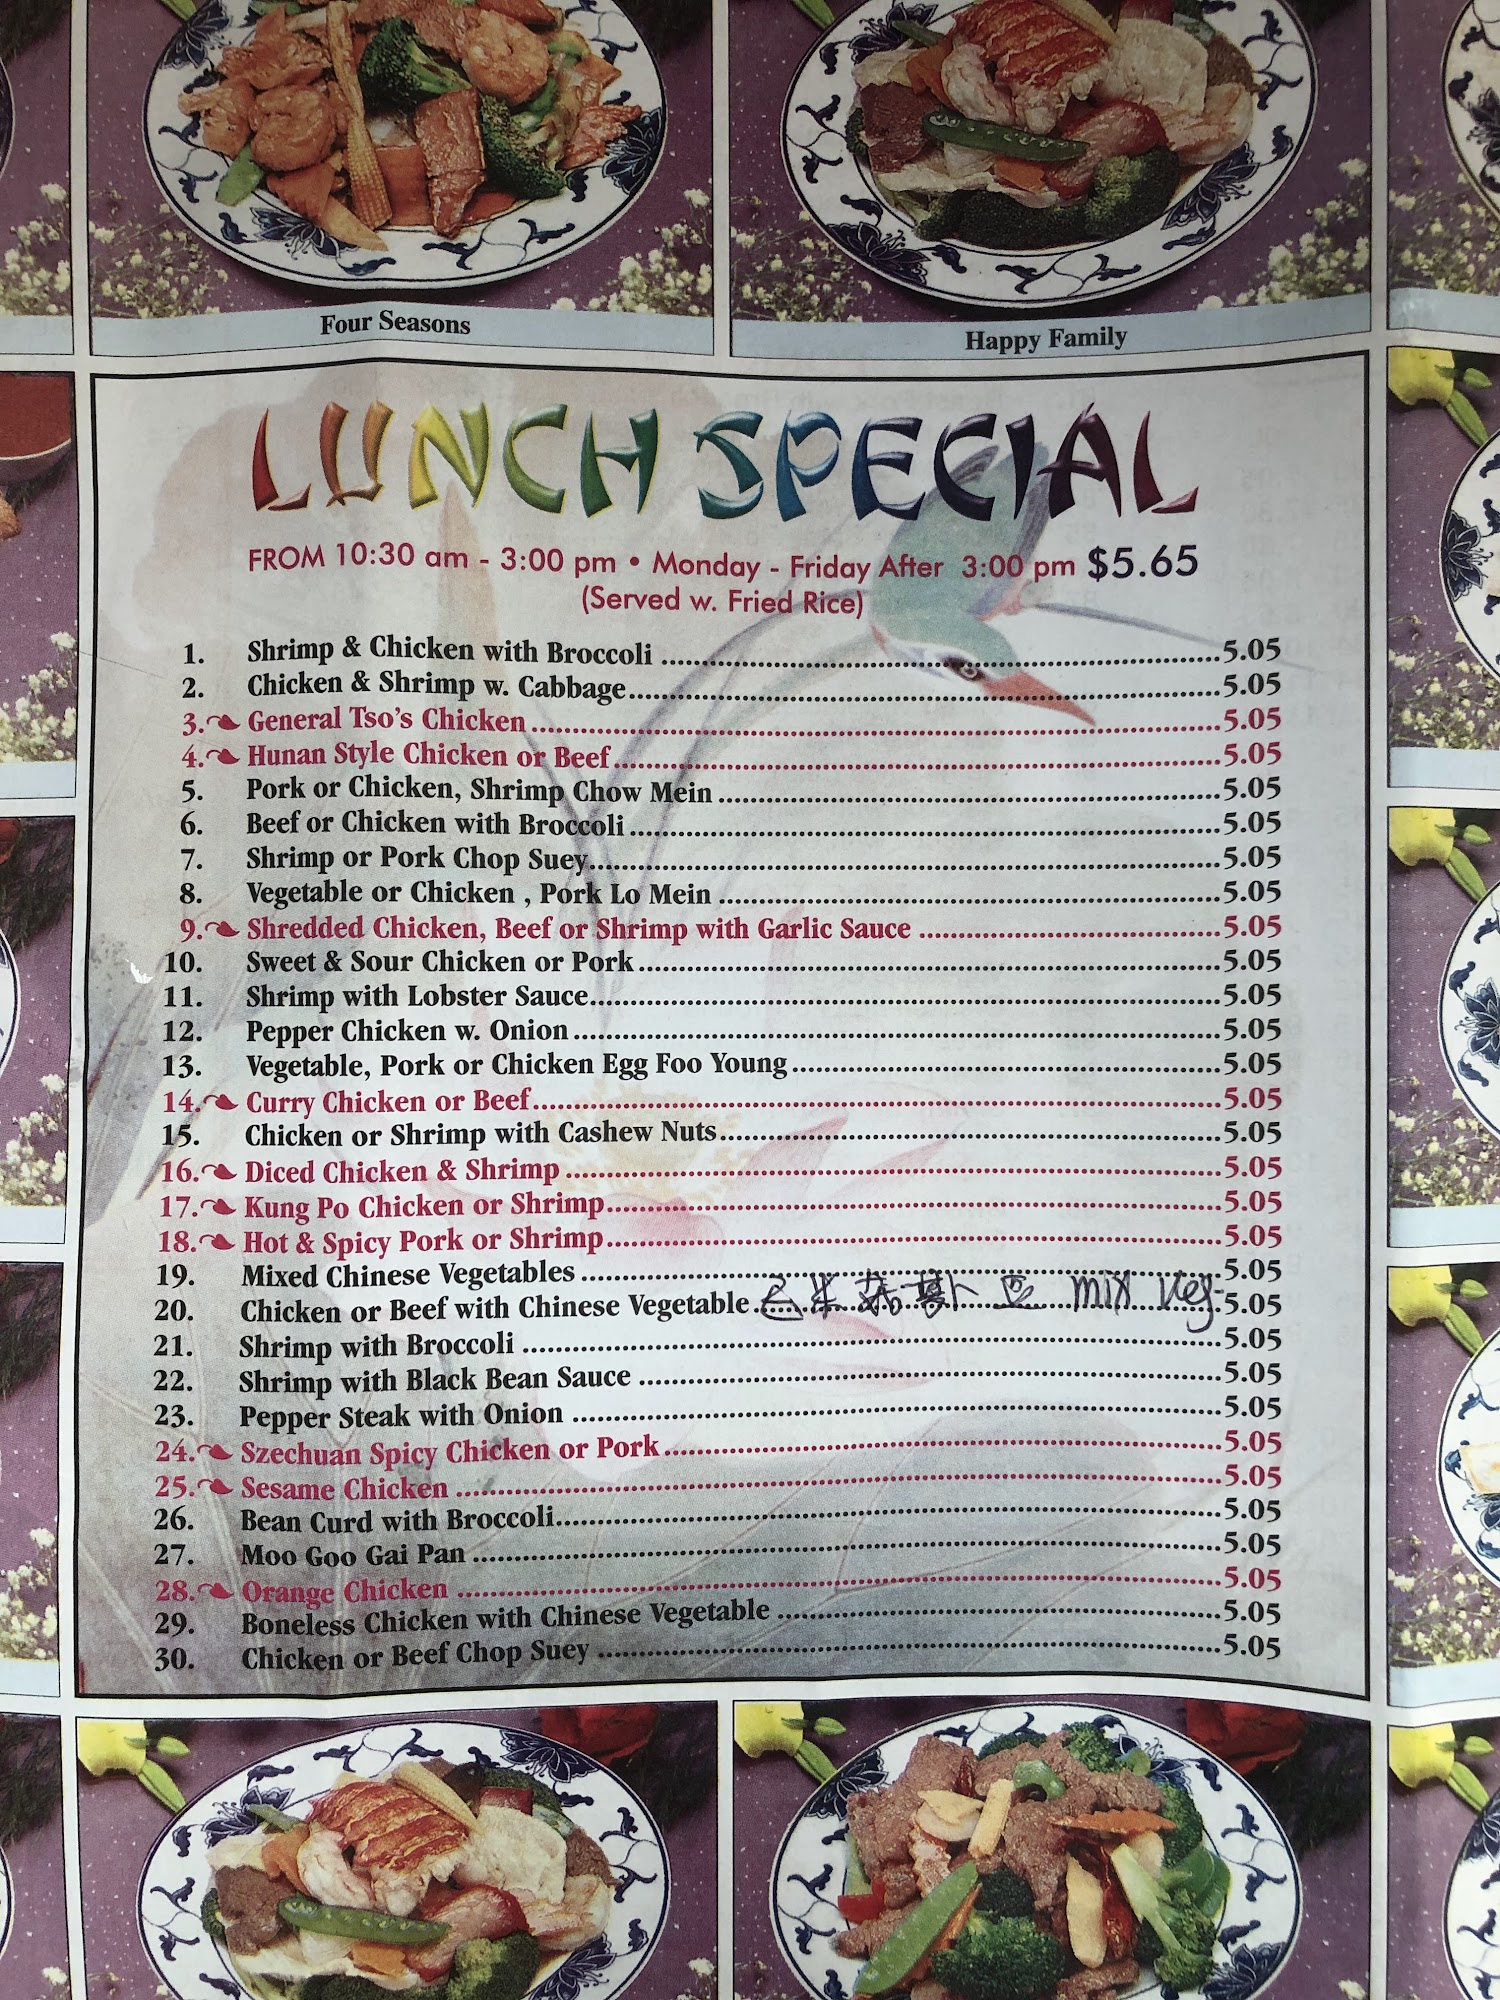 Four Seasons
Happy Family
LUNCH SPECIAL
FROM 10:30 am - 3:00 pm • Monday - Friday After 3:00 pm $5.65
(Served w. Fried Rice)
1. Shrimp & Chicken with Broccoli 5.05
2. Chicken & Shrimp w. Cabbage 5.05
3. General Tso's Chicken 5.05
4. Hunan Style Chicken or Beef 5.05
5. Pork or Chicken, Shrimp Chow Mein 5.05
6. Beef or Chicken with Broccoli 5.05
7. Shrimp or Pork Chop Suey 5.05
8. Vegetable or Chicken , Pork Lo Mein 5.05
9. Shredded Chicken, Beef or Shrimp with Garlic Sauce 5.05
10. Sweet & Sour Chicken or Pork 5.05
11. Shrimp with Lobster Sauce 5.05
12. Pepper Chicken w. Onion 5.05
13. Vegetable, Pork or Chicken Egg Foo Young 5.05
14. Curry Chicken or Beef 5.05
15. Chicken or Shrimp with Cashew Nuts 5.05
16. Diced Chicken & Shrimp 5.05
17. Kung Po Chicken or Shrimp 5.05
18. Hot & Spicy Pork or Shrimp 5.05
19. Mixed Chinese Vegetables 5.05
20. Chicken or Beef with Chinese Vegetable mix veg. 5.05
21. Shrimp with Broccoli 5.05
22. Shrimp with Black Bean Sauce 5.05
23. Pepper Steak with Onion 5.05
24. Szechuan Spicy Chicken or Pork 5.05
25. Sesame Chicken 5.05
26. Bean Curd with Broccoli 5.05
27. Moo Goo Gai Pan 5.05
28. Orange Chicken 5.05
29. Boneless Chicken with Chinese Vegetable 5.05
30. Chicken or Beef Chop Suey 5.05